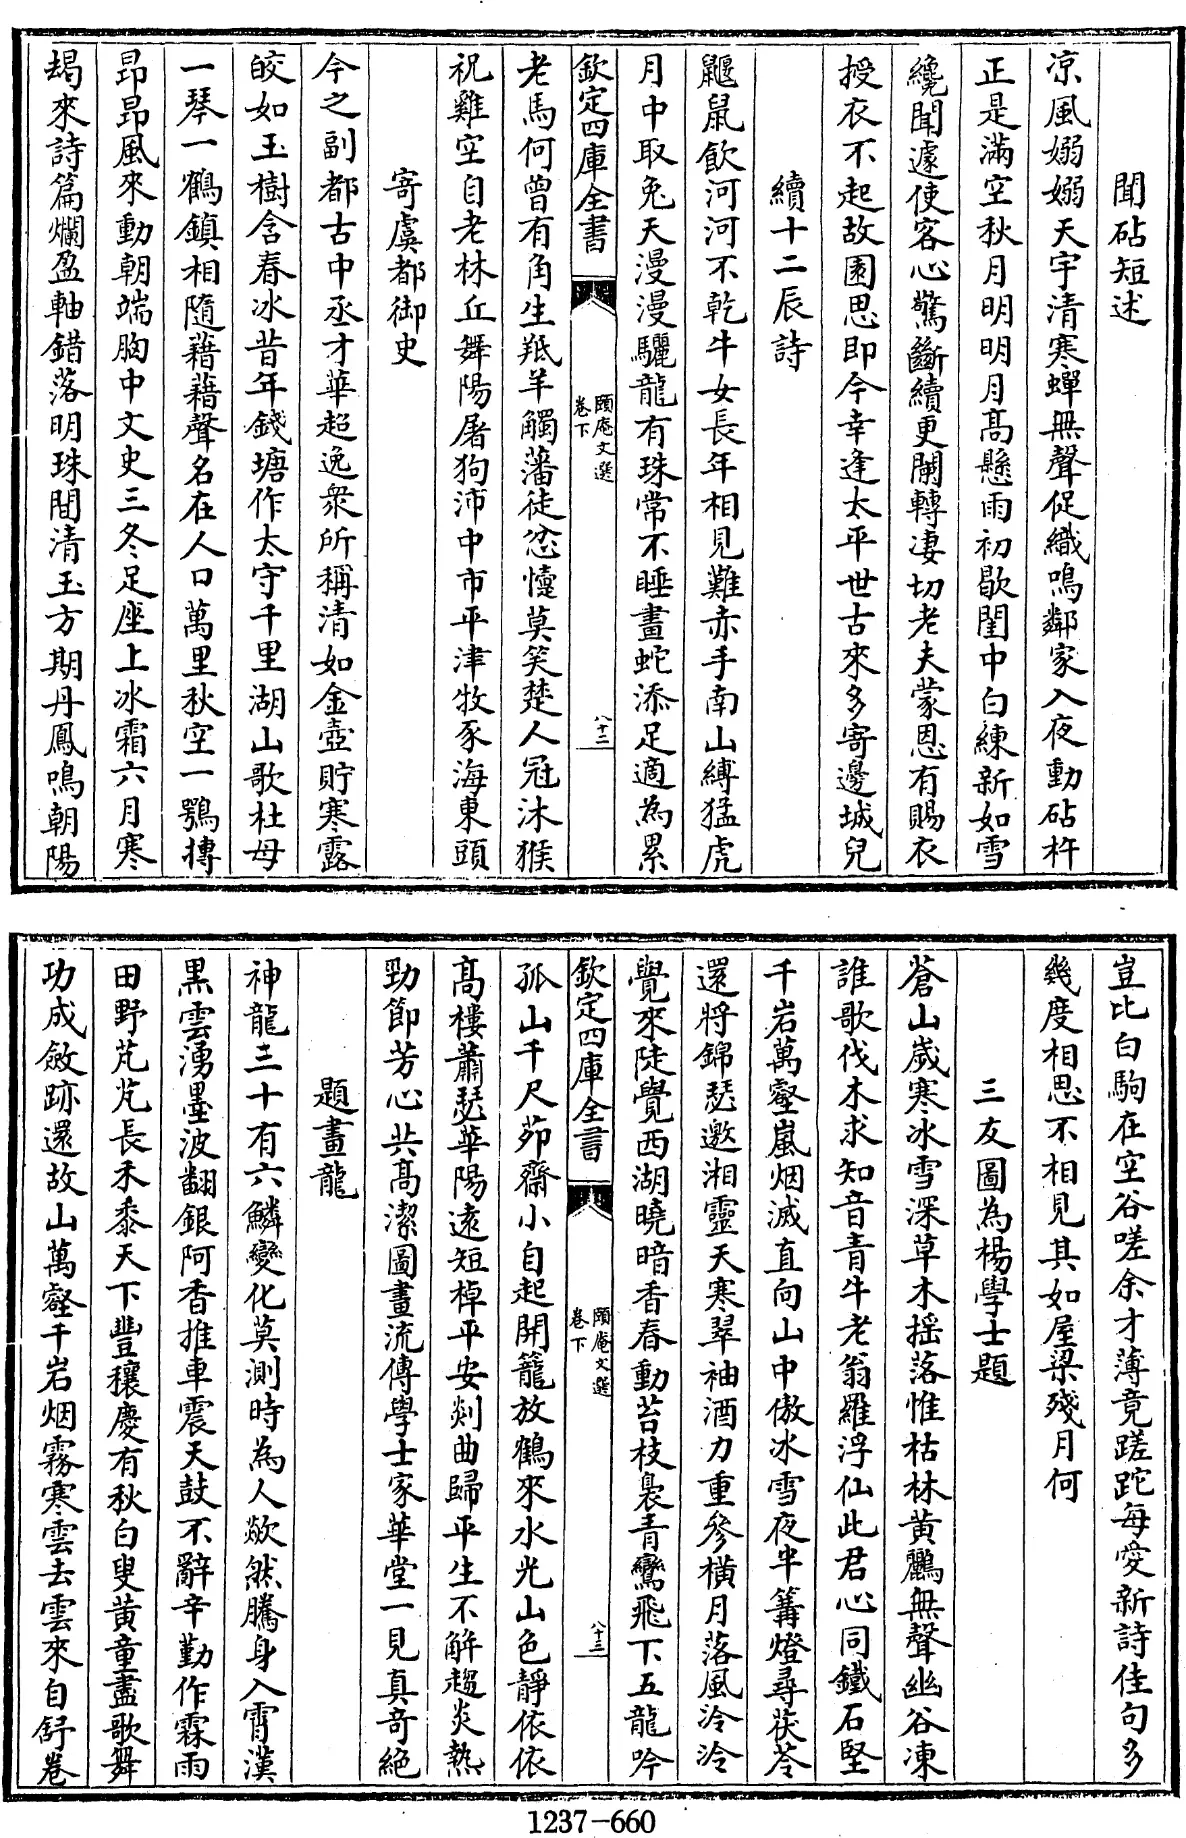 聞砧短述
涼風嫋嫋天宇清寒蟬無聲促織鳴鄰家入夜動砧杵
正是滿空秋月明明月高懸雨初歇閨中白練新如雪
纔聞遽使客心驚斷續更闌轉凄切老夫蒙恩有賜衣
授衣不起故園思即今幸逢太平世古來多寄邊城兒
續十二辰詩
鼴鼠飲河河不乾牛女長年相見難赤手南山縛猛虎
月中取兔天漫漫驪龍有珠常不睡畫蛇添足適為累
欽定四庫全書
頤庵文選
卷下
八十二
老馬何曾有角生羝羊觸藩徒忿懥莫笑楚人冠沐猴
祝雞空自老林丘舞陽屠狗沛中市平津牧豕海東頭
寄虞都御史
今之副都古中丞才華超逸衆所稱清如金壺貯寒露
皎如玉樹含春冰昔年錢塘作太守千里湖山歌杜母
一琴一鶴鎮相隨藉藉聲名在人口萬里秋空一鶚摶
昂昂風來動朝端胸中文史三冬足座上冰霜六月寒
朅來詩篇爛盈軸錯落明珠間清玉方期丹鳳鳴朝陽
豈比白駒在空谷嗟余才薄竟蹉跎每愛新詩佳句多
幾度相思不相見其如屋梁殘月何
三友圖為楊學士題
蒼山歲寒冰雪深草木揺落惟枯林黃鸝無聲幽谷凍
誰歌伐木求知音青牛老翁羅浮仙此君心同鐵石堅
千岩萬壑嵐烟滅直向山中傲冰雪夜半篝燈尋茯苓
還將錦瑟邀湘靈天寒翠袖酒力重參橫月落風泠泠
覺來陡覺西湖曉暗香春動苔枝裊青鸞飛下五龍吟
欽定四庫全書
頤庵文選
卷下
八十三
孤山千尺茆齋小自起開籠放鶴來水光山色靜依依
高樓蕭瑟華陽遠短棹平安剡曲歸平生不解趨炎熱
勁節芳心共高潔圖畫流傳學士家華堂一見真奇絕
題畫龍
神龍三十有六鱗變化莫測時為人歘然騰身入霄漢
黒雲湧墨波翻銀阿香推車震天鼓不辭辛勤作霖雨
田野芃芃長禾黍天下豐穰慶有秋白叟黃童盡歌舞
功成斂跡還故山萬壑千岩烟霧寒雲去雲來自舒卷
1237-660